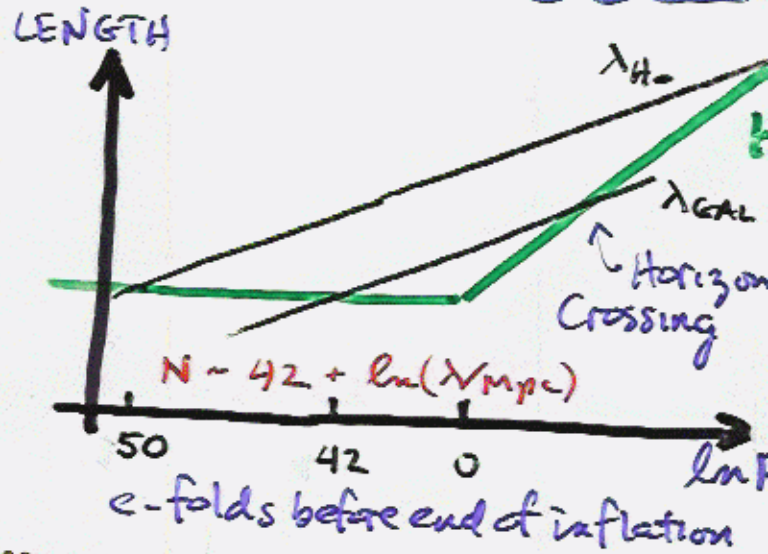 LENGTH
λH₀
λGAL
Horizon
Crossing
N ~ 42 + ln(λ/Mpc)
50
42
0
ln
e-folds before end of inflation